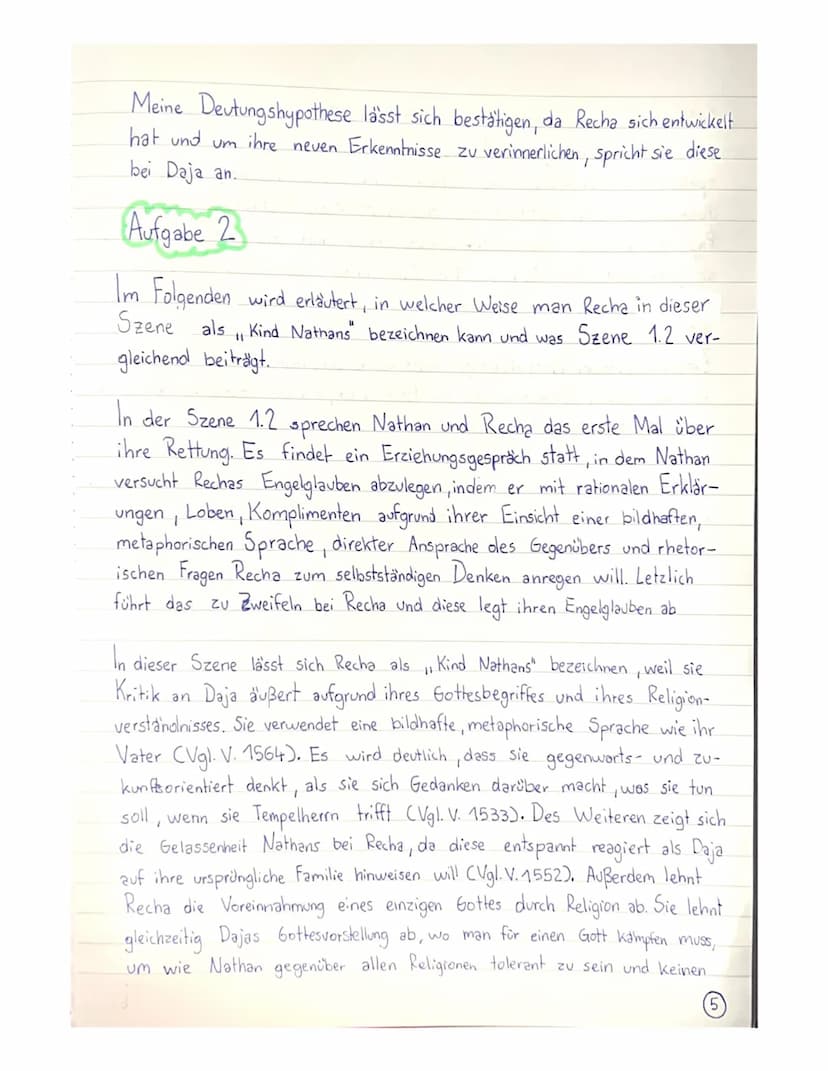 Meine Deutungshypothese lässt sich bestätigen, da Recha sich entwickelt
hat und um ihre neuen Erkenntnisse zu verinnerlichen, spricht sie diese
bei Daja an.
Aufgabe 2
Im Folgenden wird erläutert, in welcher Weise man Recha in dieser
Szene als „Kind Nathans" bezeichnen kann und was Szene 1.2 ver-
gleichend beiträgt.
In der Szene 1.2 sprechen Nathan und Recha das erste Mal über
ihre Rettung. Es findet ein Erziehungsgespräch statt, in dem Nathan
versucht Rechas Engelglauben abzulegen, indem er mit rationalen Erklär-
ungen, Loben, Komplimenten aufgrund ihrer Einsicht einer bildhaften,
metaphorischen Sprache, direkter Ansprache des Gegenübers und rhetor-
ischen Fragen Recha zum selbstständigen Denken anregen will. Letzlich
führt das zu Zweifeln bei Recha und diese legt ihren Engelglauben ab
In dieser Szene lässt sich Recha als „Kind Nathans" bezeichnen, weil sie
Kritik an Daja äußert aufgrund ihres Gottesbegriffes und ihres Religion-
verständnisses. Sie verwendet eine bildhafte, metaphorische Sprache wie ihr
Vater (Vgl. V. 1564). Es wird deutlich, dass sie gegenwarts- und zu-
kunftsorientiert denkt, als sie sich Gedanken darüber macht, was sie tun
soll, wenn sie Tempelherrn trifft (Vgl. V. 1533). Des Weiteren zeigt sich
die Gelassenheit Nathans bei Recha, da diese entspannt reagiert als Daja
auf ihre ursprüngliche Familie hinweisen will (Vgl. V. 1552). Außerdem lehnt
Recha die Voreinnahmung eines einzigen Gottes durch Religion ab. Sie lehnt
gleichzeitig Dajas Gottesvorstellung ab, wo man für einen Gott kämpfen muss,
um wie Nathan gegenüber allen Religionen tolerant zu sein und keinen
5